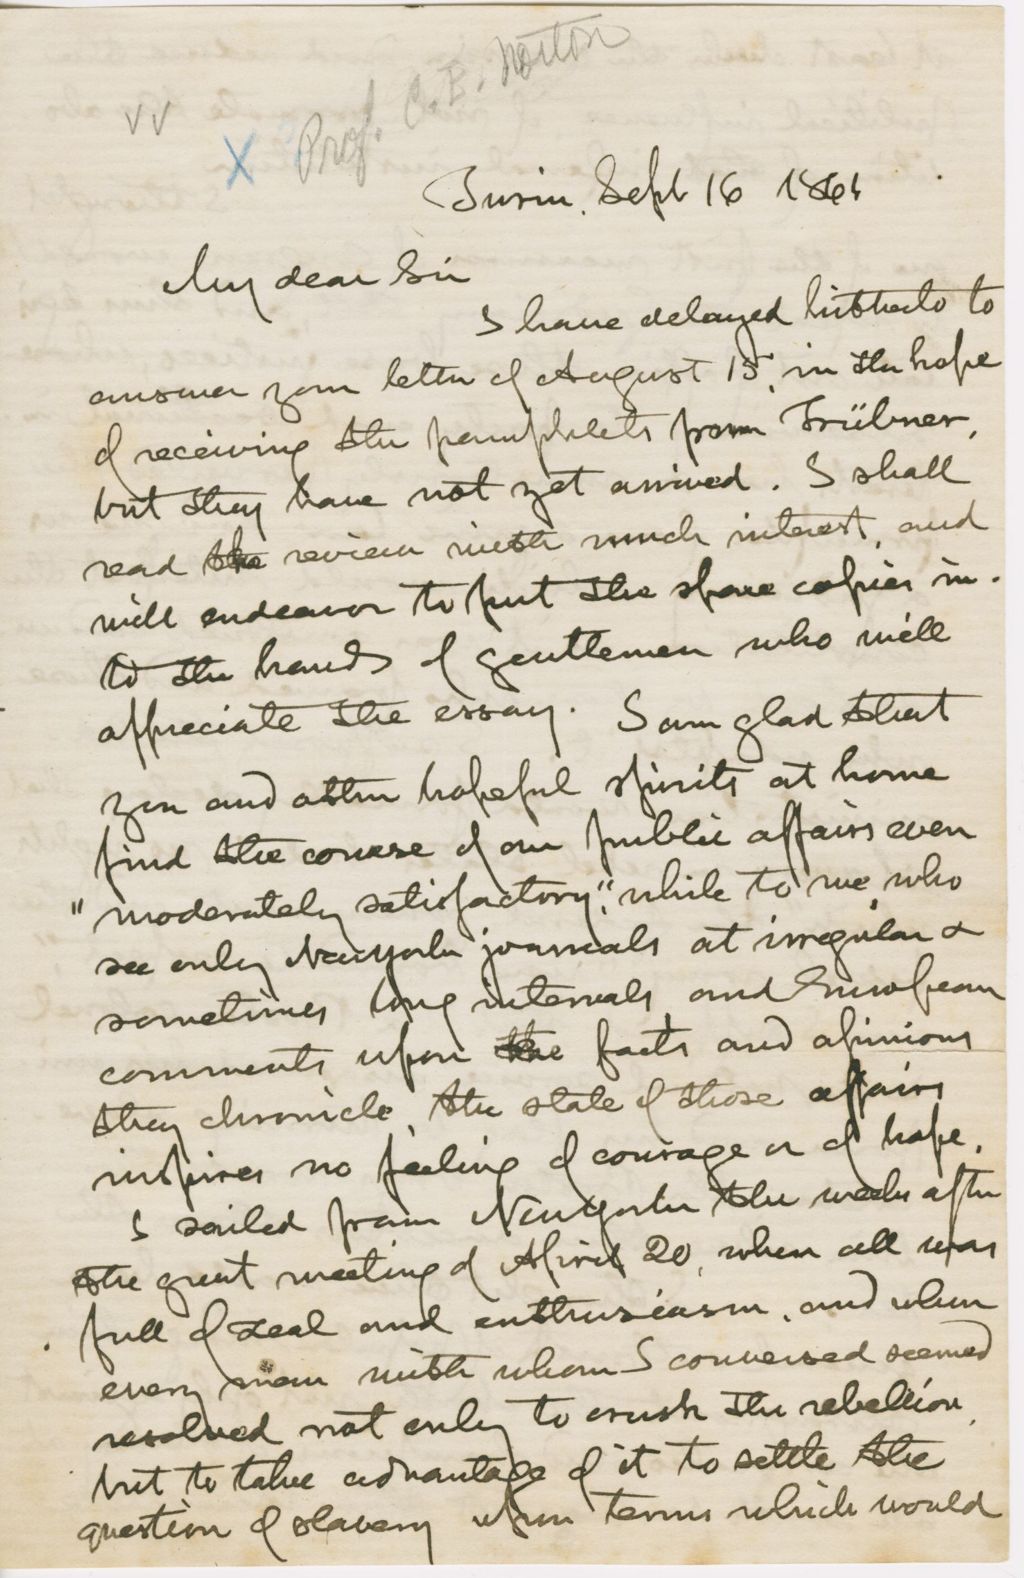 Prof. C. E. Norton
VV
X
Turin, Sept 16 1861
My dear Sir
I have delayed hitherto to
answer your letter of August 15, in the hope
of receiving the pamphlets from Trübner,
but they have not yet arrived. I shall
read the review with much interest, and
will endeavor to put the spare copies in-
to the hands of gentlemen who will
appreciate the essay. I am glad that
you and other hopeful spirits at home
find the course of our public affairs even
"moderately satisfactory", while to me, who
see only New York journals at irregular &
sometimes long intervals and European
comments upon the facts and opinions
they chronicle, the state of those affairs
inspires no feeling of courage or of hope.
I sailed from New York the week after
the great meeting of April 20, when all was
full of zeal and enthusiasm, and when
every man with whom I conversed seemed
resolved not only to crush the rebellion,
but to take advantage of it to settle the
question of slavery upon terms which would